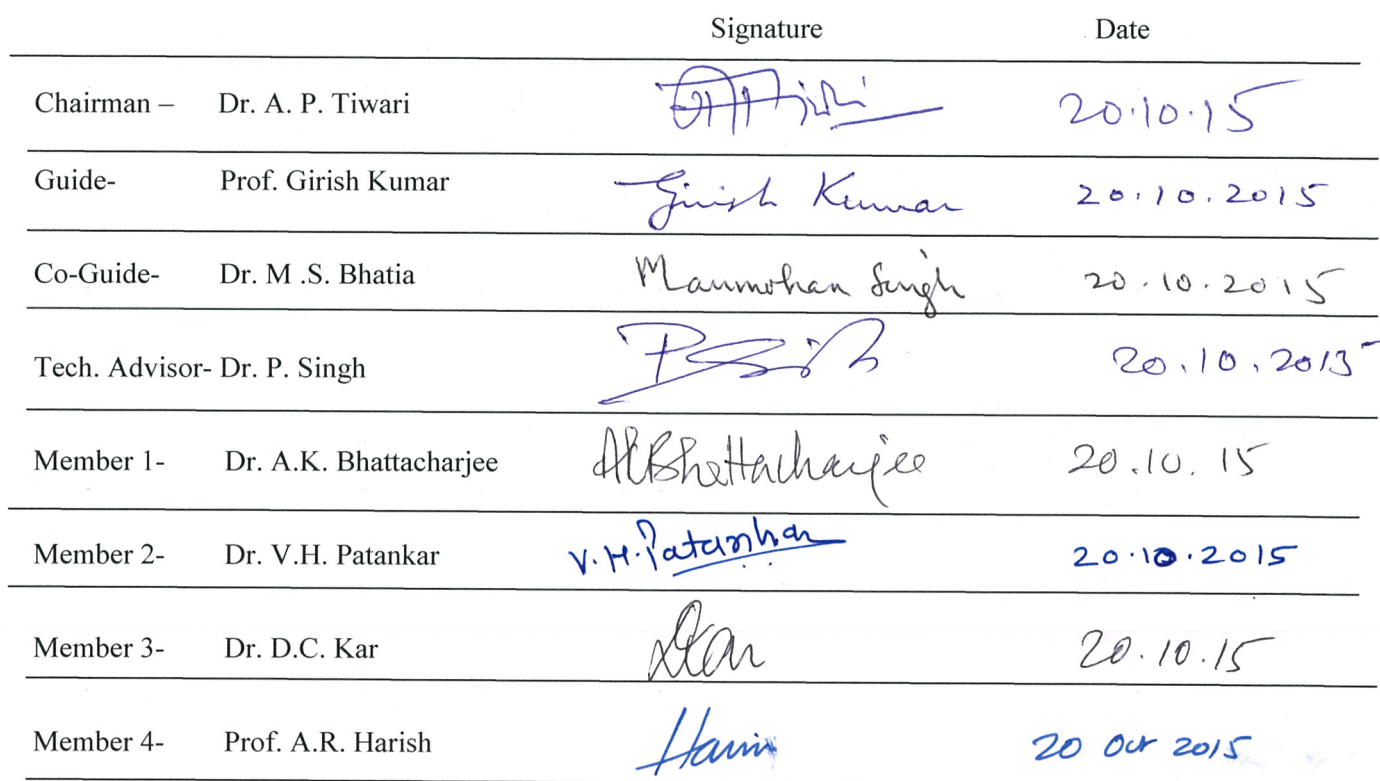 Signature Date
Chairman – Dr. A. P. Tiwari 20.10.15
Guide- Prof. Girish Kumar Girish Kumar 20.10.2015
Co-Guide- Dr. M .S. Bhatia Manmohan Singh 20.10.2015
Tech. Advisor- Dr. P. Singh PSingh 20.10.2015
Member 1- Dr. A.K. Bhattacharjee AKBhattacharjee 20.10.15
Member 2- Dr. V.H. Patankar V.H.Patankar 20.10.2015
Member 3- Dr. D.C. Kar DKar 20.10.15
Member 4- Prof. A.R. Harish Harish 20 Oct 2015